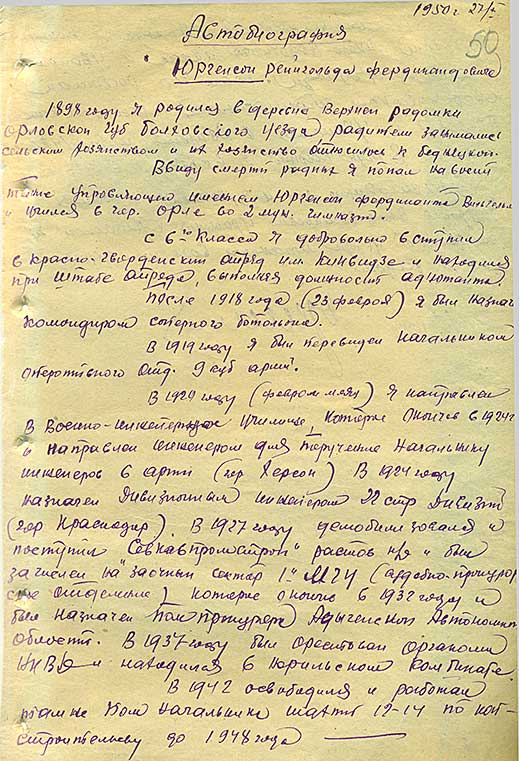 1950 г 27/I
50
Автобиография
Юргенсон Рейнгольда Фердинандовича
1898 году я родился в деревне Верхней радомки
Орловской губ Болховского уезда, родители занимались
сельским хозяйством и их хозяйство относилось к бедняцкой.
Ввиду смерти родных я попал на воспи
тание управляющего имением Юргенсон Фердинанта
и учился в гор. Орле во 2 муж. гимназии.
с 6го класса я добровольно вступил
в красно-гвардейский отряд им Киквидзе и находился
при штабе отряда, выполняя должность адютанта.
После 1918 года (23 февроля) я был назнач
командиром саперного ботольона.
В 1919 году я был переведен начальником
оперотивного отд. 9 куб армии.
В 1920 году (февроль м-ц) я направлен
в Военно-инженерное училище, которое окончев в 1924 г
и направлен инженером для поручение Начальнику
инженеров 6 арти (гор Херсон) В 1924 году
назначен дивизионным инженером 22 стр дивизии
(гор Краснодар). В 1927 году демобилизовался и
поступил "Севкавпромстрой" растов н/д и был
зачислен на заочный сектор 1го МГУ (судебно-прокурор
ское отделение) которые окончил в 1932 году и
был назначен пом прокурора Адыгейской Автономной
области. В 1937 году был орестован Органами
НКВД и находился в норильском комбинате.
В 1942 освободился и работал
там же Пом Начальника шахты 12-14 по кап-
строительсву до 1948 года